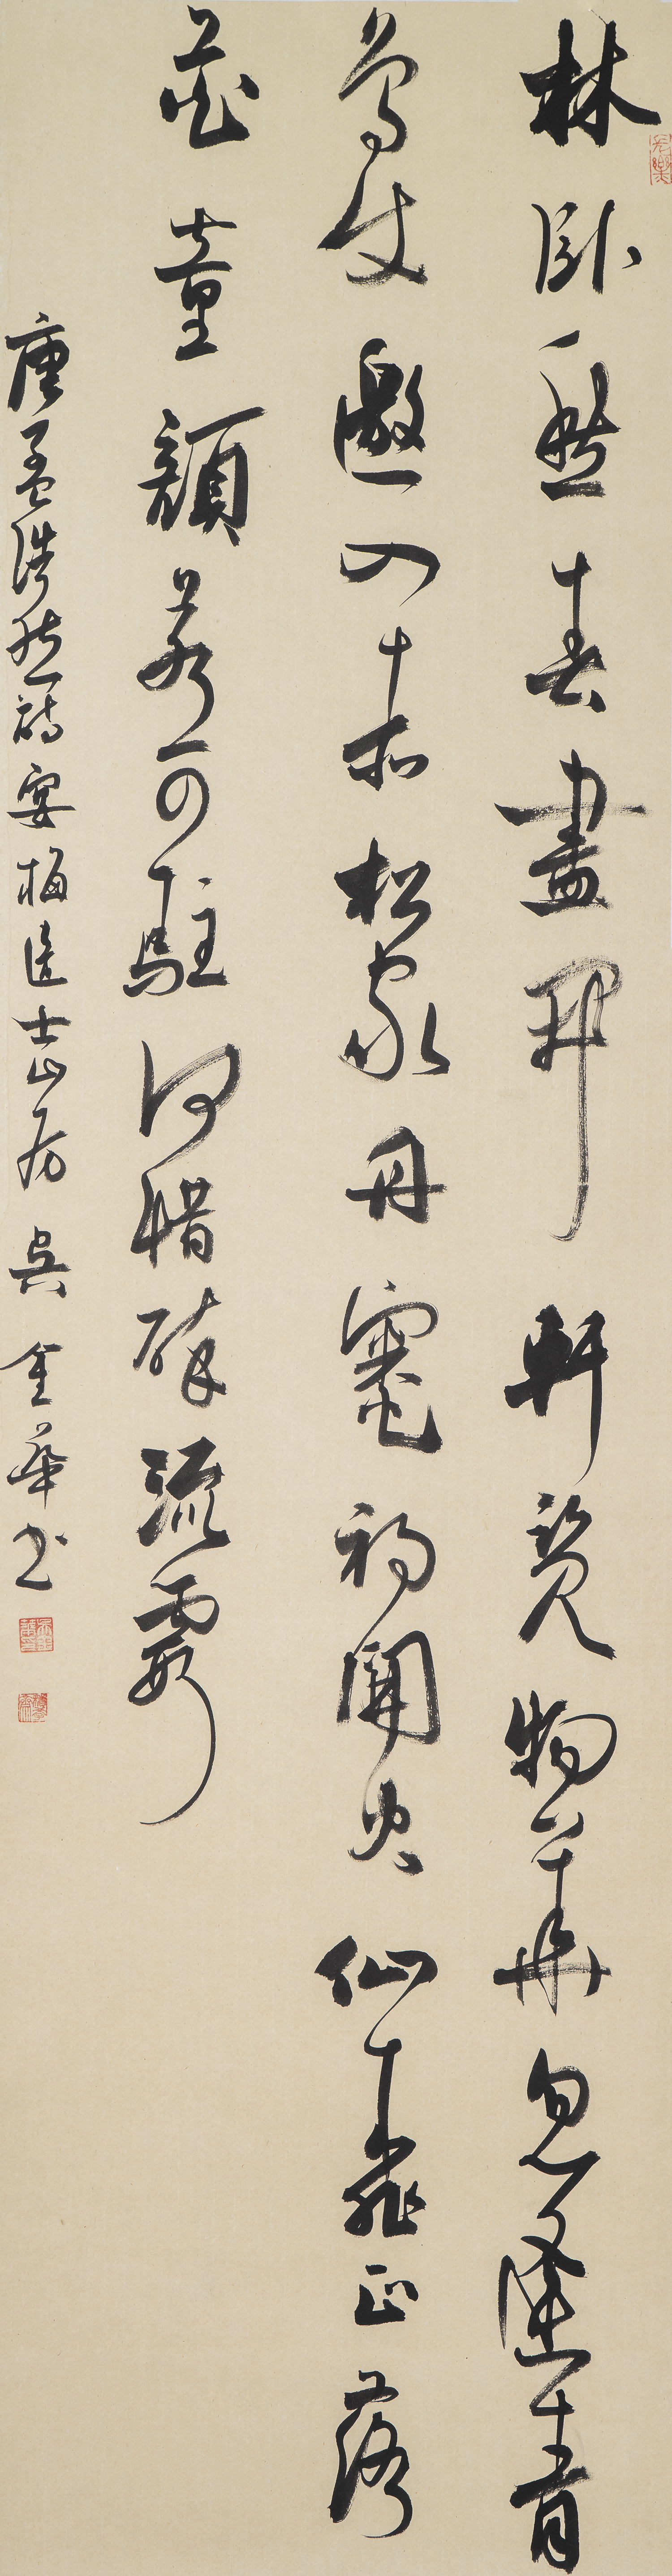 林卧愁春盡開軒覽物華忽逢青
鳥使邀入赤松家丹竈初開火仙桃正落
花童顏若可駐何惜醉流霞
唐孟浩然詩宴梅道士山房 吳金華書